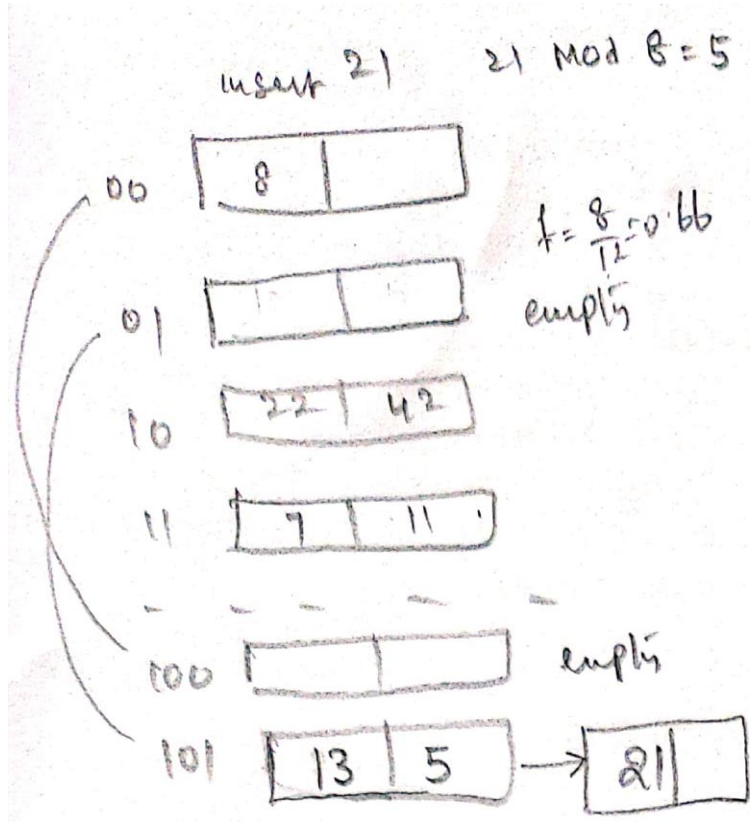 insert 21 21 Mod 8 = 5
00 8
f = 8/12 = 0.66
01 empty
10 22 42
11 7 11
100 empty
101 13 5 → 21